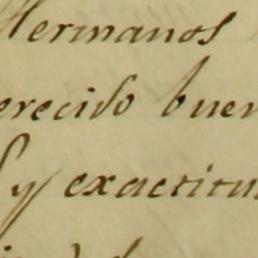 Hermanos
erecido buen
y exactitu